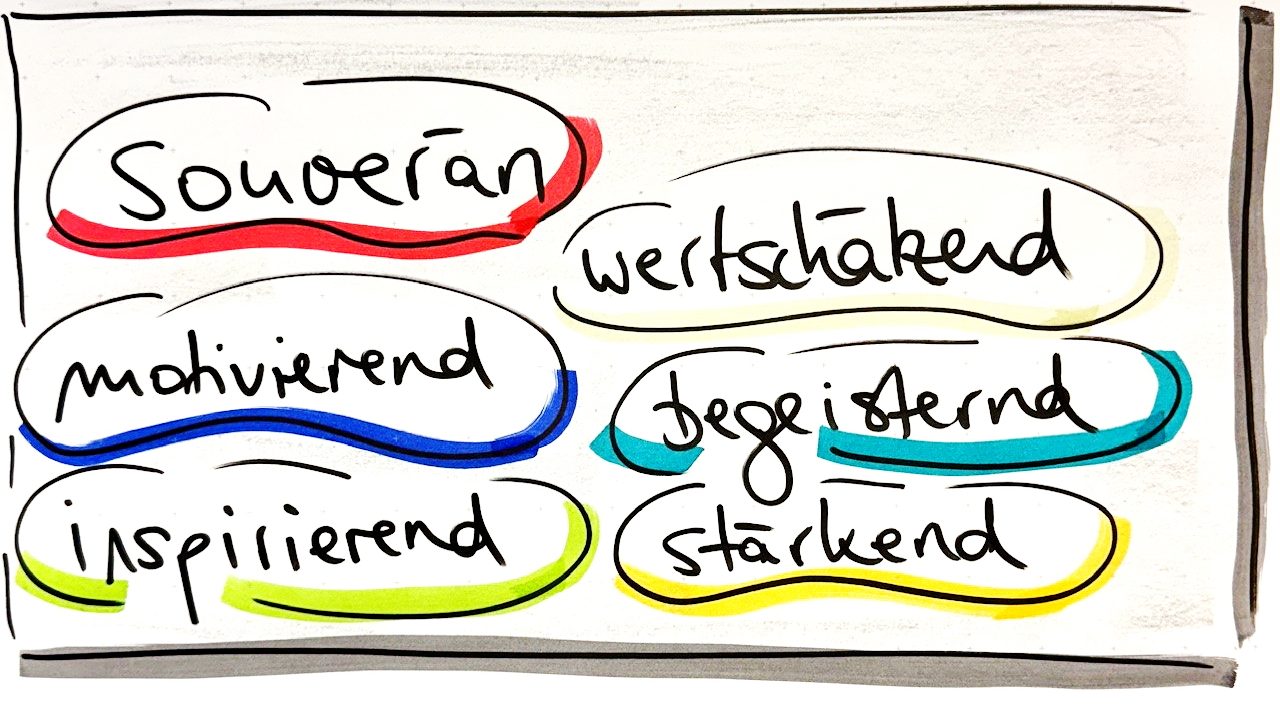 souverän
wertschätzend
motivierend
begeisternd
inspirierend
stärkend